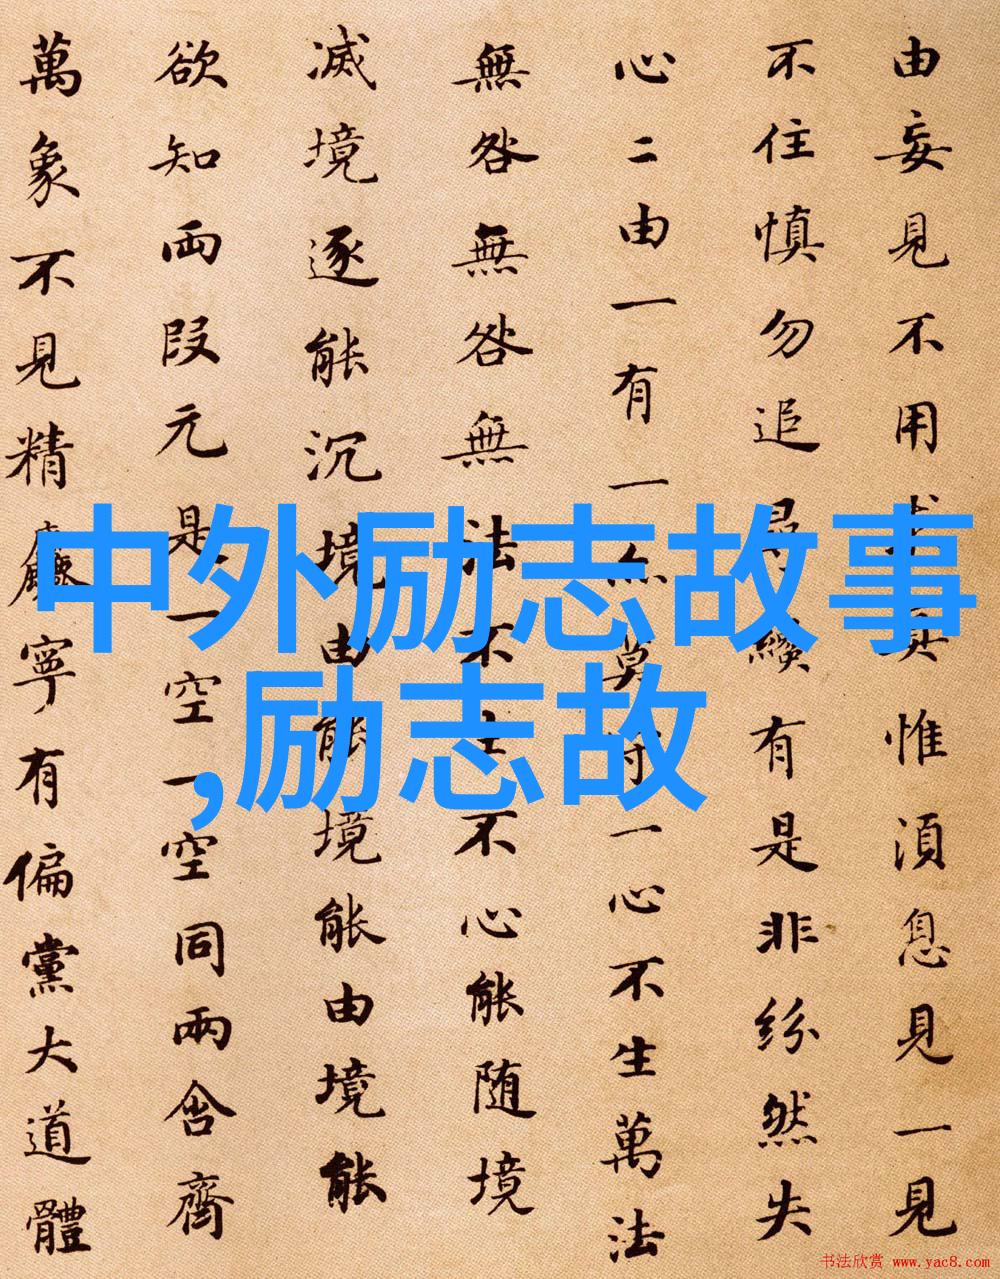 由妄見不用求真惟須息見一見
不住慎勿追尋纔有是非紛然失
心二由一有一亦莫守一心不生萬法
無咎無咎無法不生不心能随境
滅境逐能沉境由能境能由境能
欲知两段元是一空一空同兩含齊
萬象不見精麤寧有偏黨大道體
中外励志故事
,励志故
书法欣赏 www.yac8.com